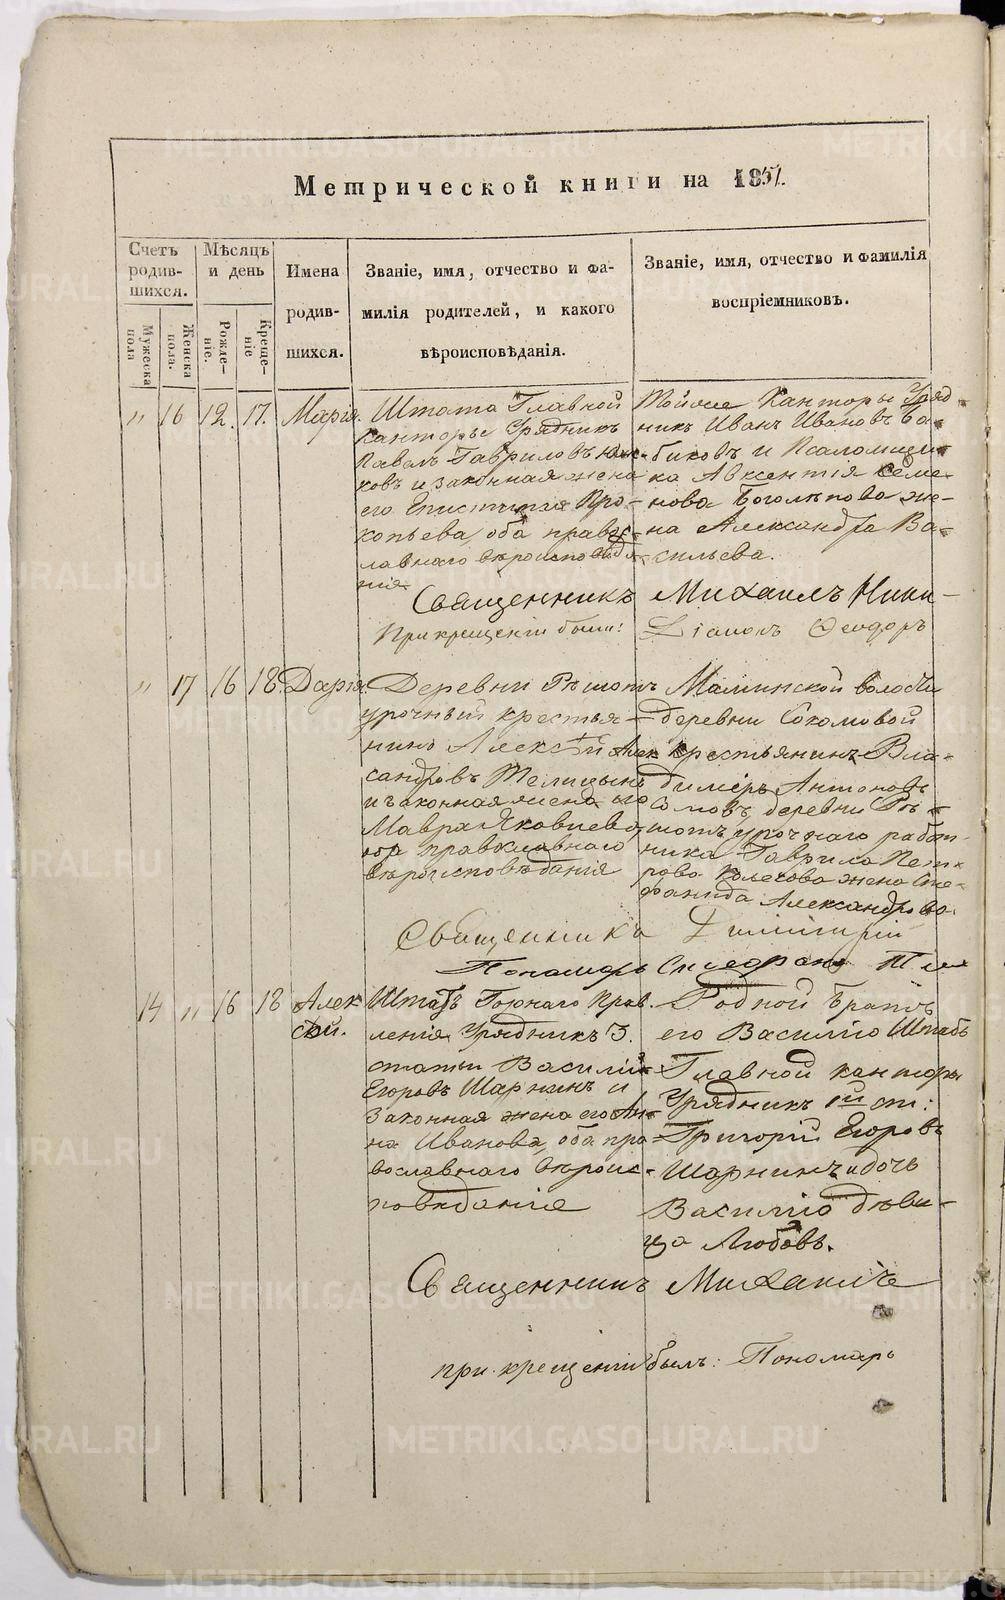 Метрической книги на 1851.
Счетъ родив-шихся.
Мѣсяцъ и день
Имена родив-шихся.
Званіе, имя, отчество и фа-
милія родителей, и какого
вѣроисповѣданія.
Званіе, имя, отчество и фамилія
воспріемниковъ.
Мужеска пола
Женска пола.
Рожде-ніе.
Креще-ніе
" 16 12. 17. Марія.
Штата Главной
канторы Урядникъ
Павелъ Гавриловъ
ковъ и законная жена
его Епистимія Про-
копьева, оба правос-
лавнаго вѣроисповѣда-
нія
Тойже Канторы Уряд-
никъ Иванъ Ивановъ Ба-
биковъ и Псаломщи-
ка Авксентія Семе-
нова Боголѣпова же-
на Александра Ва-
сильева.
Священникъ Михаилъ Ники-
При крещеніи были: Діаконъ Ѳеодоръ
" 17 16 18. Дарія.
Деревни Рѣшотъ
урочный крестья-
нинъ Алексѣй Алек
сандровъ Телицынъ
и законная жена его
Мавра Яковлева,
оба православнаго
вѣроисповѣданія
Маминской волости
деревни Соколовой
крестьянинъ Вла-
димеръ Антоновъ
Сомовъ, деревни Рѣ-
шотъ урочнаго работ-
ника Гаврила Пет-
рова Колесова жена Сте-
фанида Александрова.
Священникъ Димитрій
Пономарь
14 " 16 18 Алек
сѣй.
Штатъ Горнаго Прав-
ленія Урядникъ 3.
статьи Василій
Егоровъ Шарнинъ и
Законная жена его Ан-
на Иванова, оба пра-
вославнаго вѣроис-
повѣданія
Родной братъ
его Василію Штабъ
Главной канторы
Урядникъ 1й ст:
Григорій Егоровъ
Шарнинъ и дочь
Василію дѣви-
ца Любовь.
Священникъ Михаилъ
при крещеніи былъ: Пономарь
METRIKI.GASO-URAL.RU